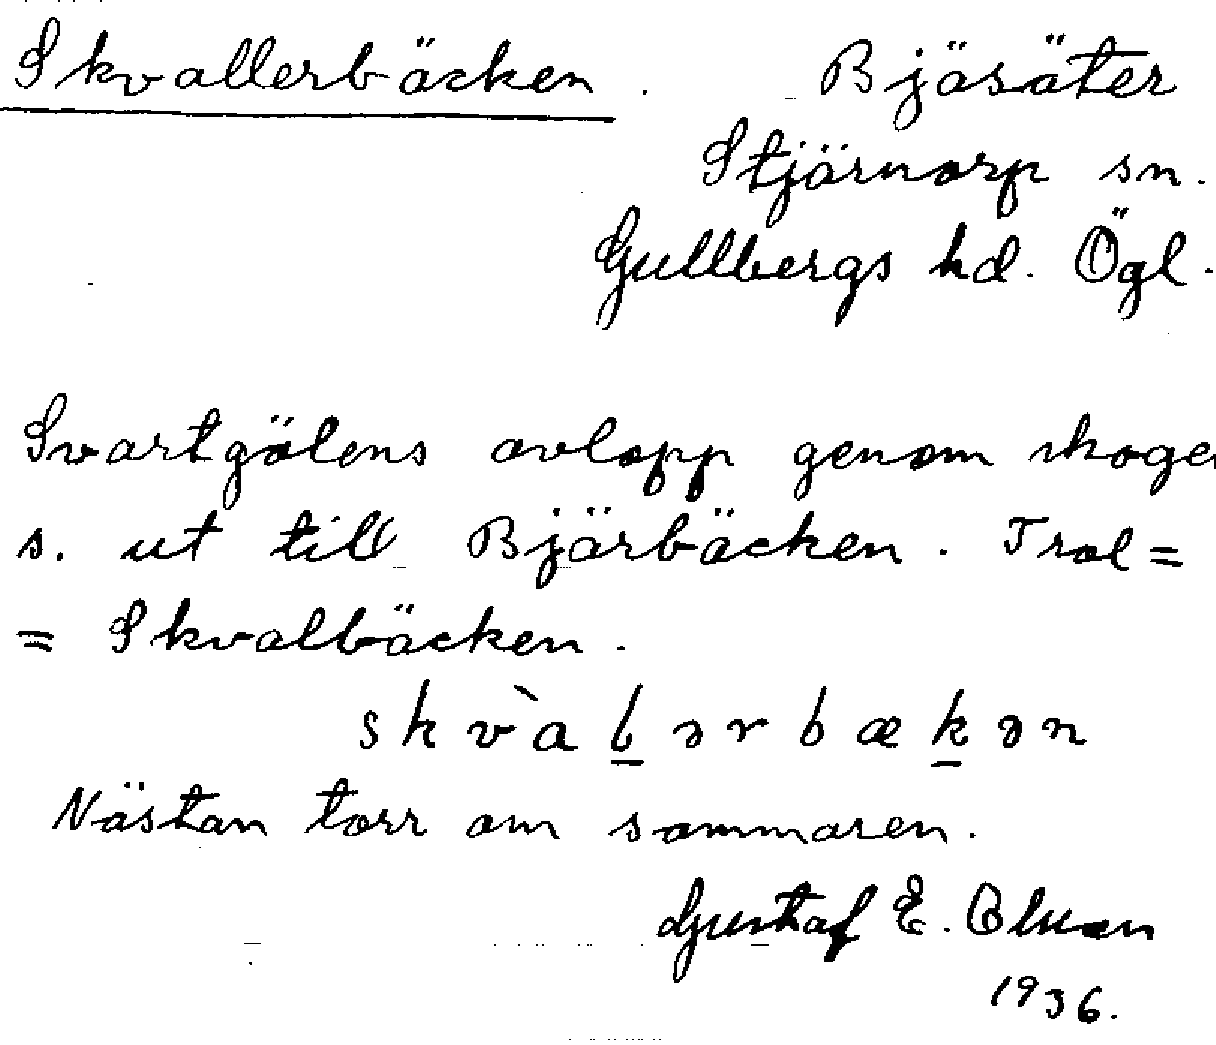 Skvallerbäcken. Bjäsäter
Stjärnorp sn.
Gullbergs hd. Ögl.
Svartgölens avlopp genom skoge
s. ut till Bjärbäcken. Trol=
= Skvalbäcken.
skv̀alərbækən
Nästan torr om sommaren.
Gustaf E. Olsson
1936.